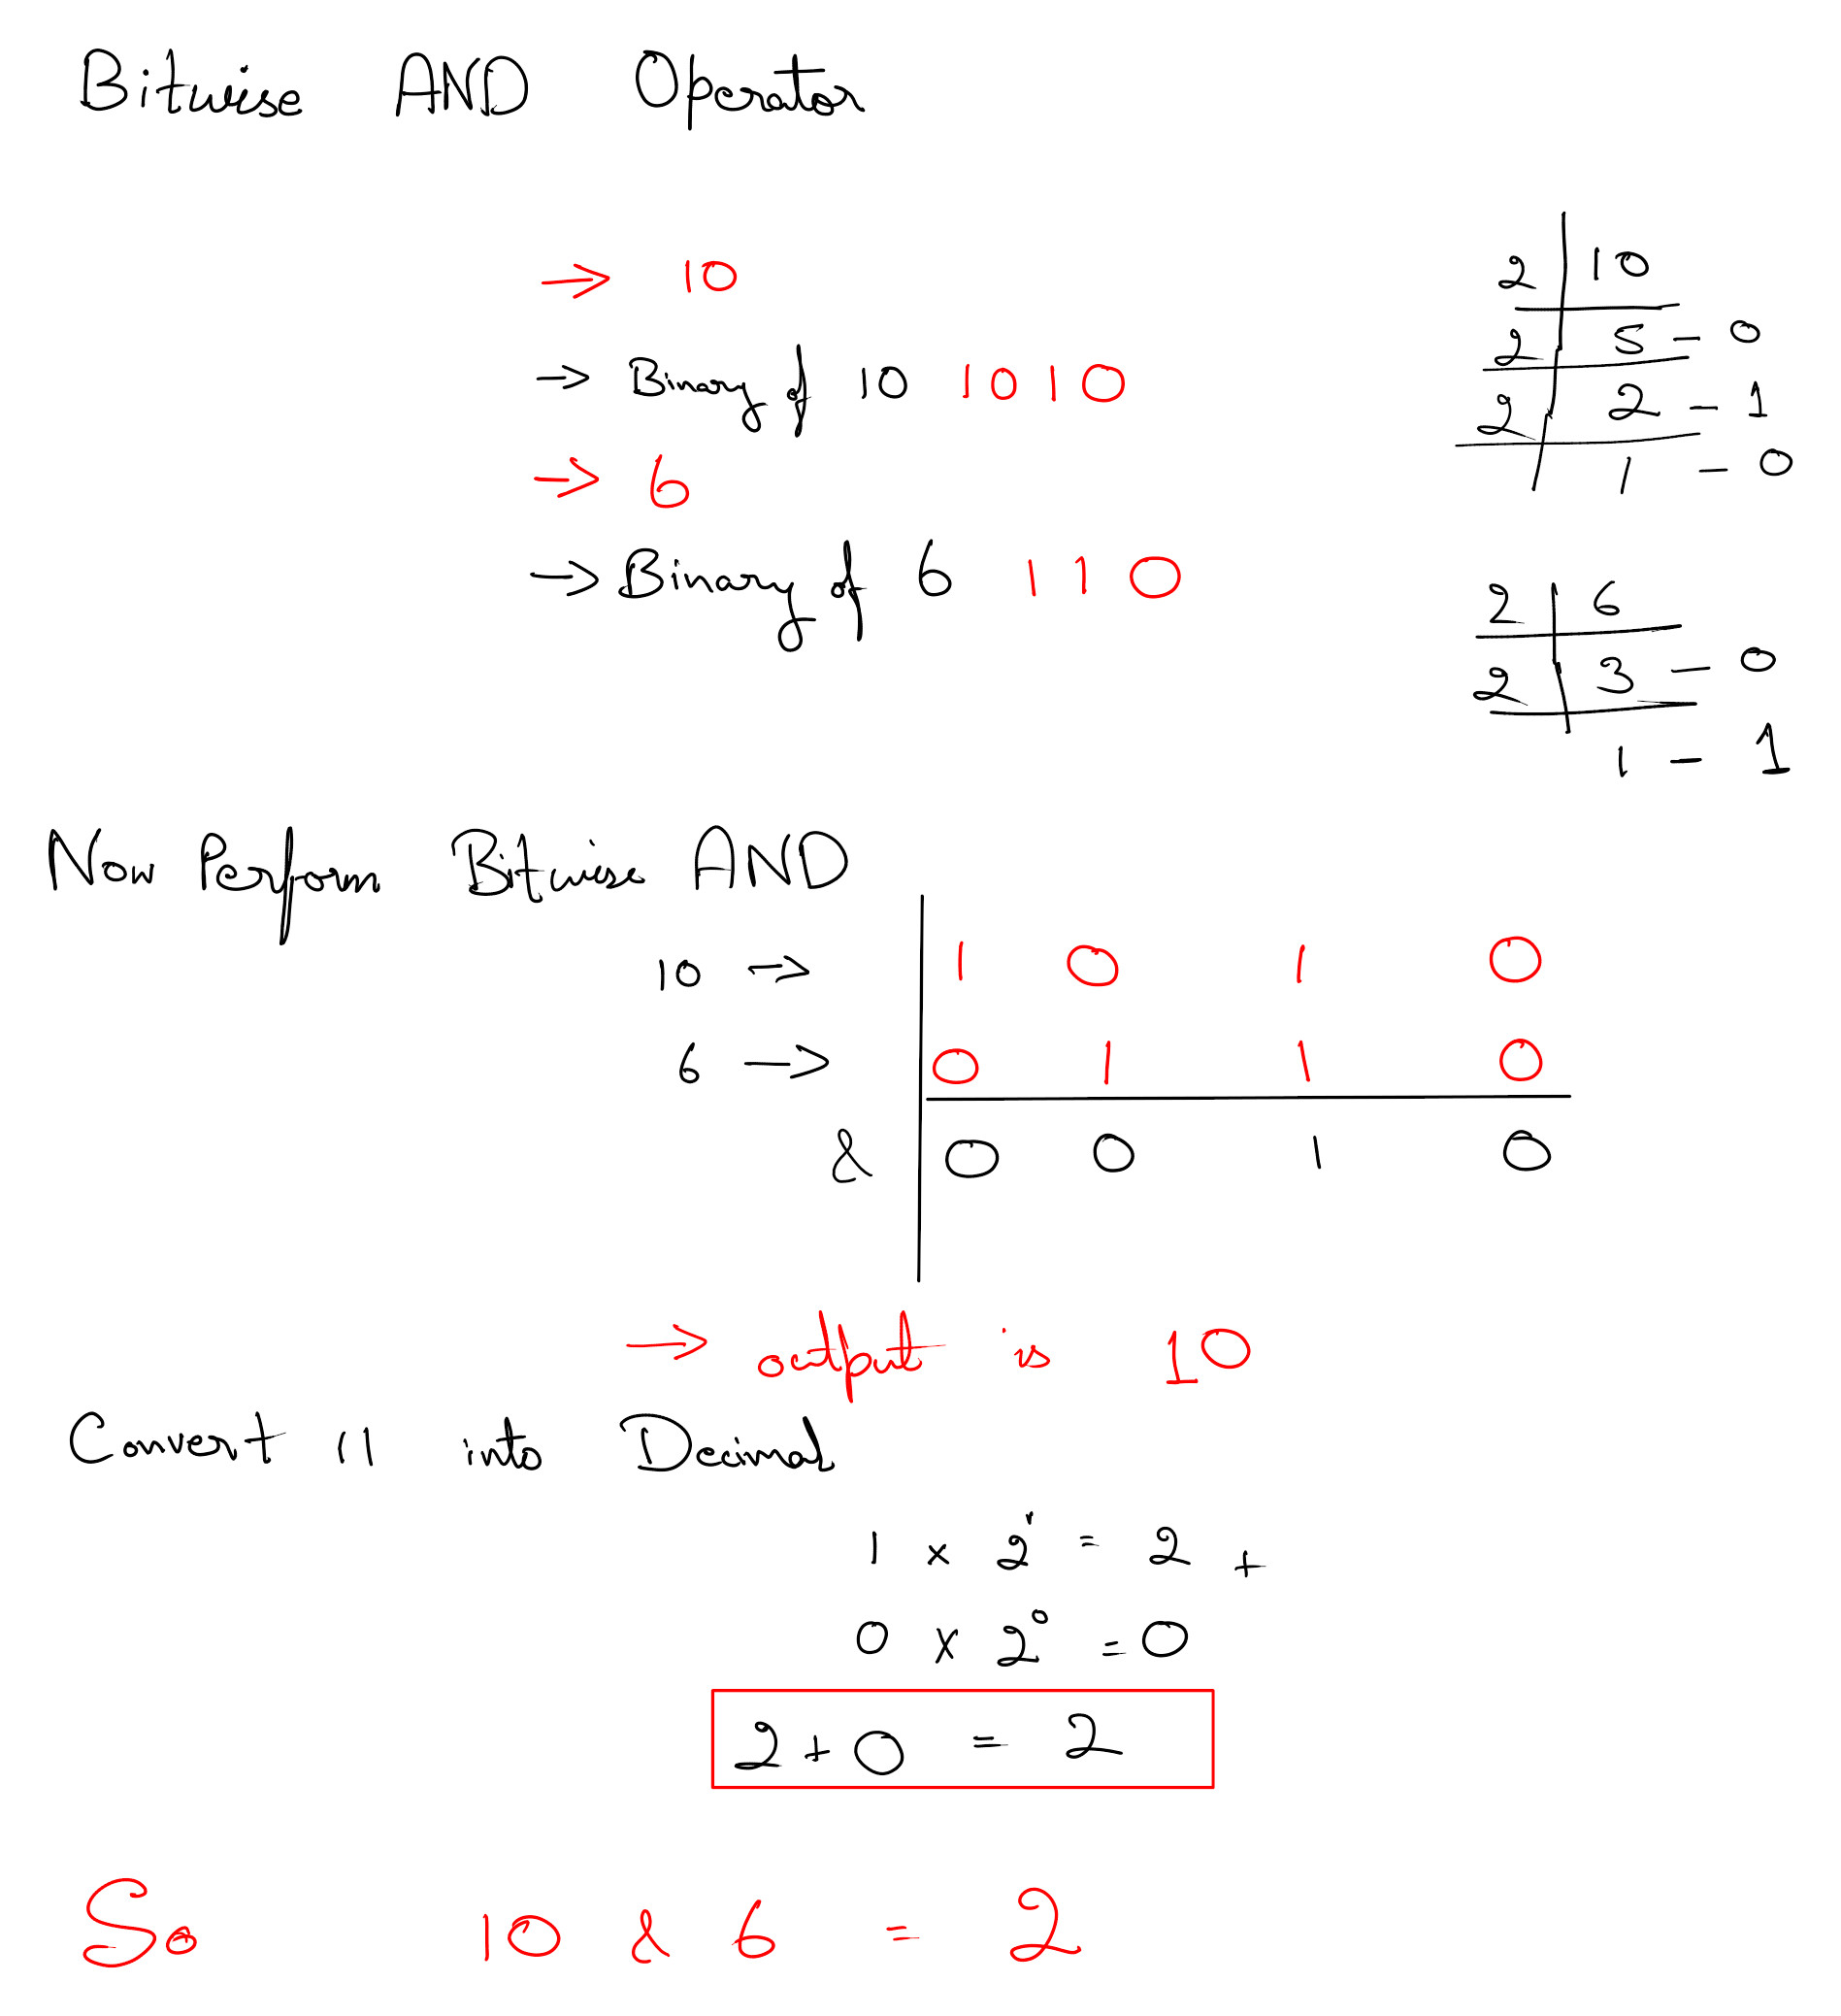 Bitwise AND Operator
→ 10
→ Binary of 10 1010
→ 6
→ Binary of 6 110
2 | 10
2 | 5 - 0
2 | 2 - 1
1 - 0
2 | 6
2 | 3 - 0
1 - 1
Now Perform Bitwise AND
10 → 1 0 1 0
6 → 0 1 1 0
& 0 0 1 0
→ output is 10
Convert 11 into Decimal
1 × 2¹ = 2 +
0 × 2⁰ = 0
2 + 0 = 2
So 10 & 6 = 2